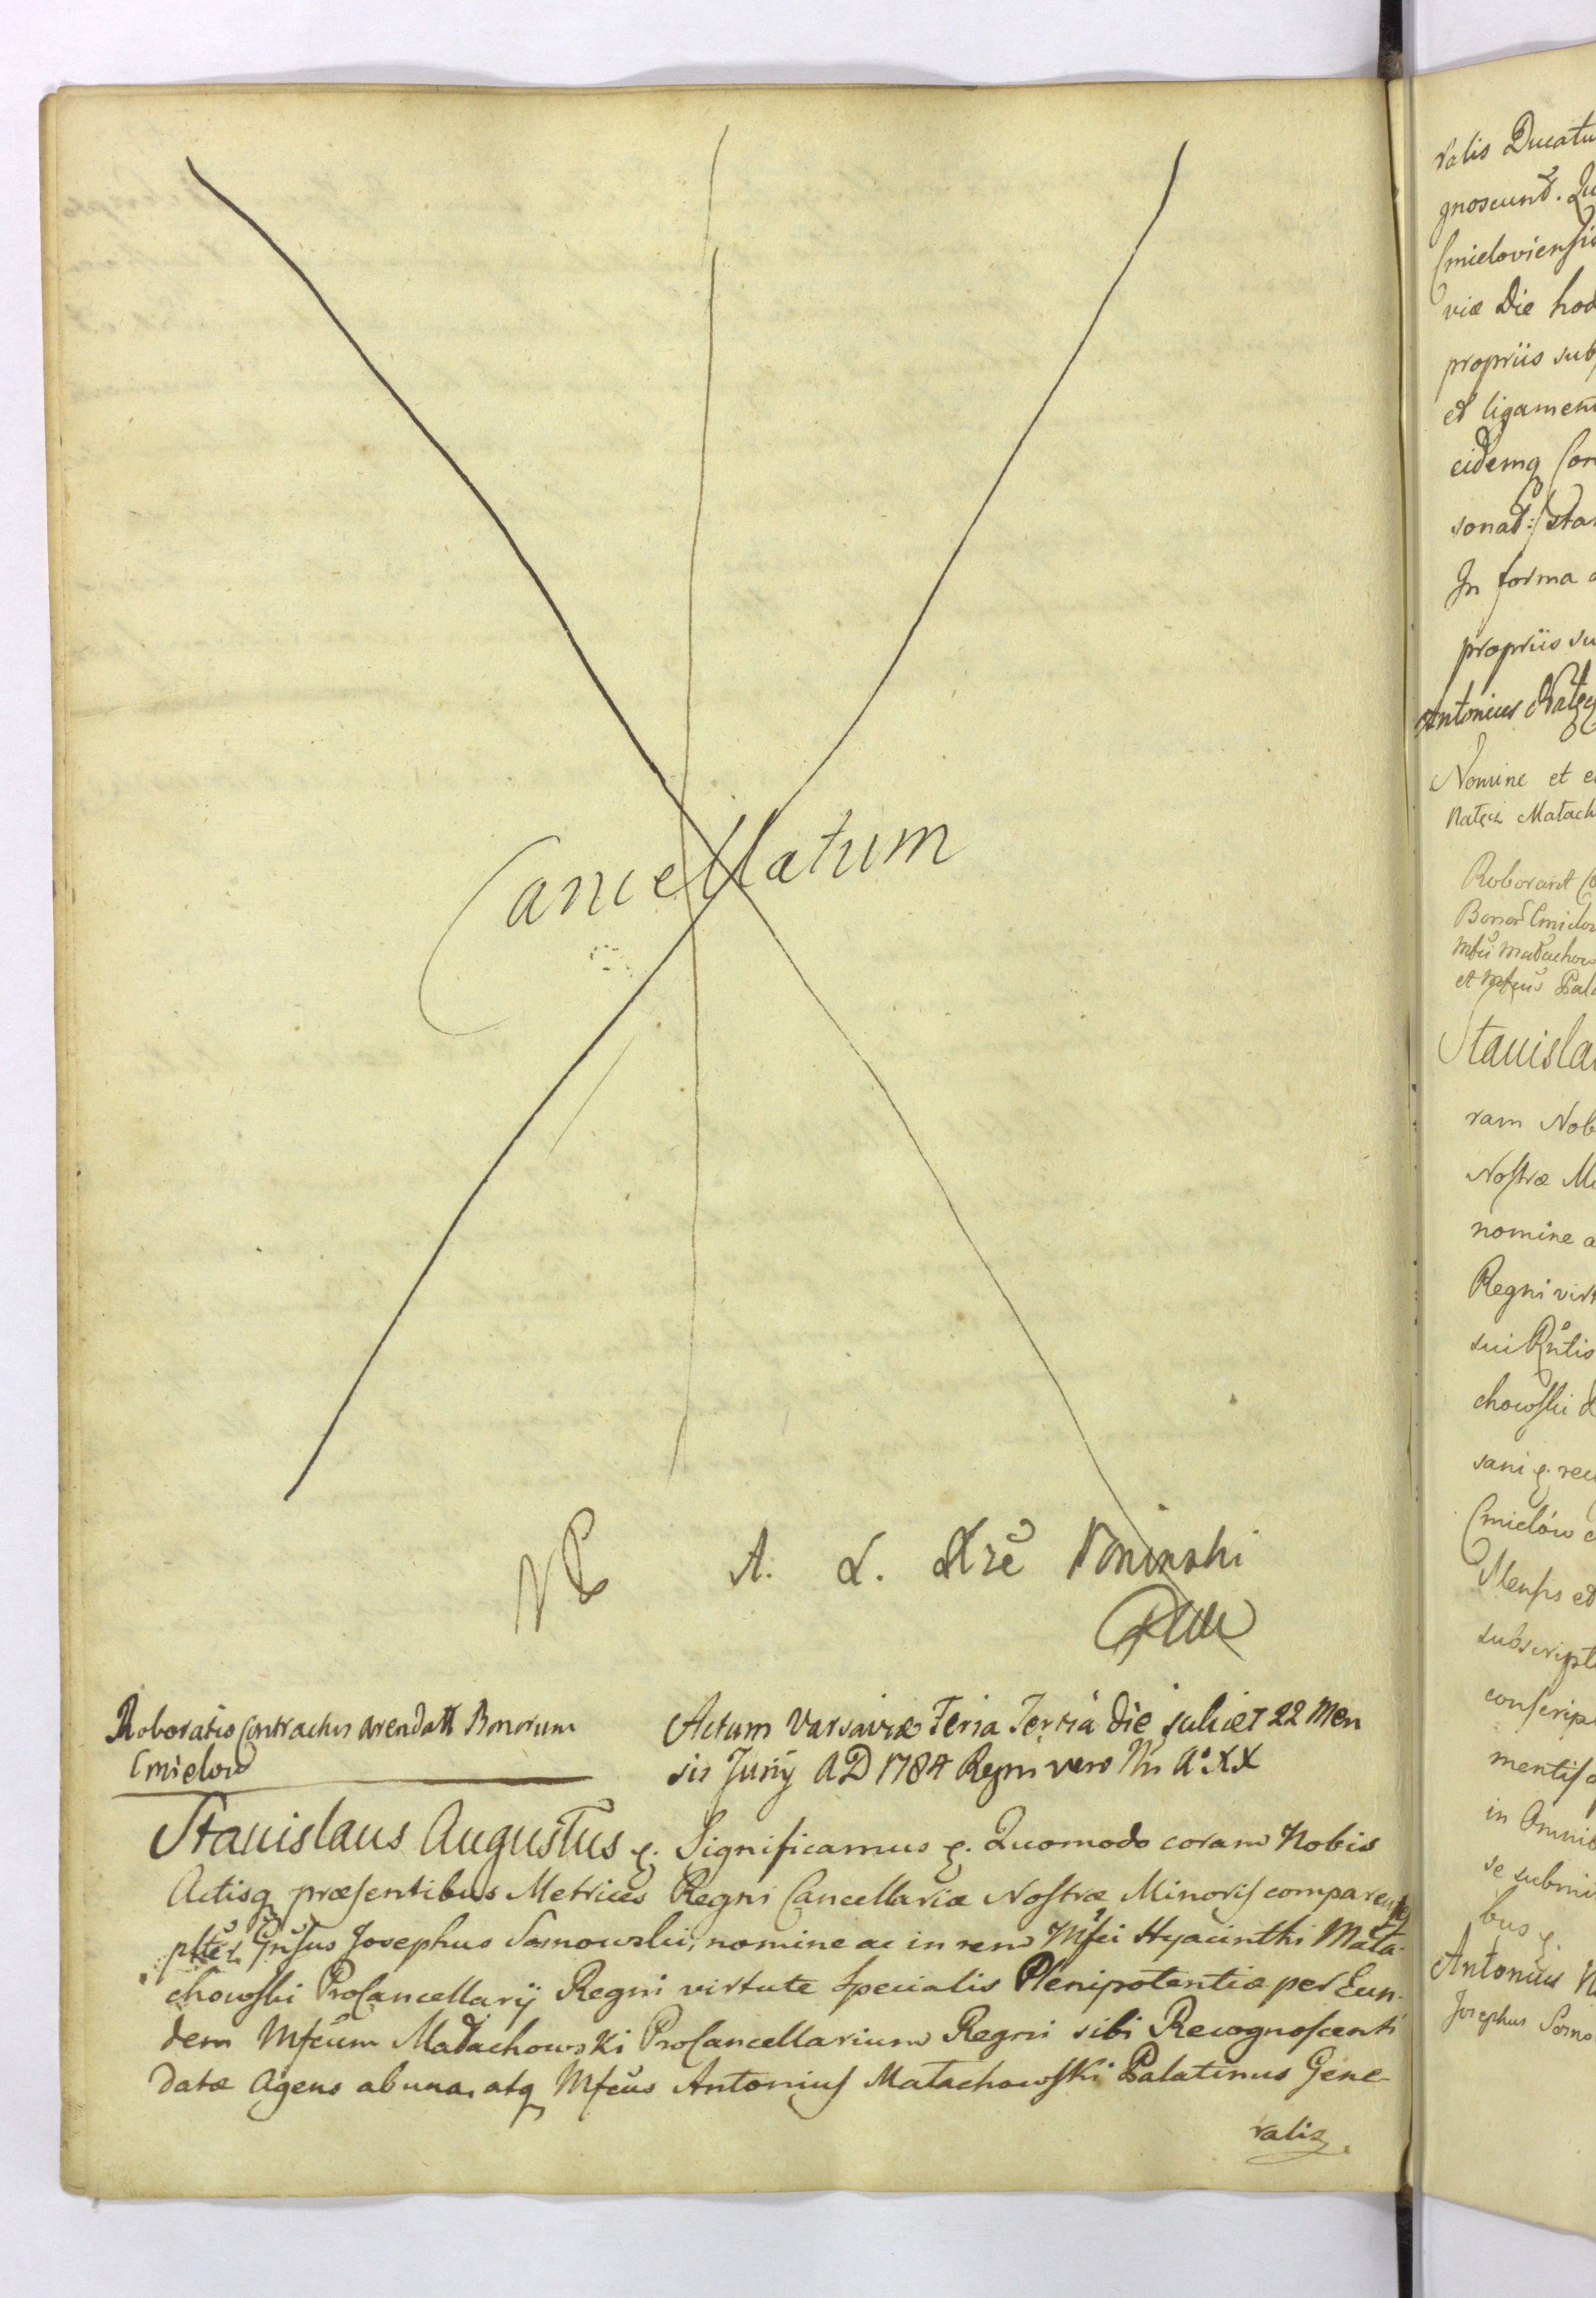 Cancellatum
A. L. Xże Poninski
Roboratio Contractus Arendatt Bonorum
Cmielow
Actum Varsaviæ Feria Tertia die scilicet 22 Men
sis Junij A D 1784 Regni vero Nri A° XX
Stanislaus Augustus Significamus Quomodo coram Nobis
Actisq præsentibus Metrices Regni Cancellariæ Nostræ Minoris comparen
plter Gnsus Josephus Sosnowski, nomine ac in rem Mfci Hyacinthi Mała-
chowski ProCancellarij Regni virtute specialis Plenipotentiæ per Eun-
dem Mfcum Małachowski ProCancellarium Regni sibi Recognoscenti
datæ agens ab una, atq Mfcus Antonius Małachowski Palatinus Gene-
ralis
ralis Ducatu
gnoscunt. Qu
Cmieloviensis
viæ Die hod
propriis sub
et ligamen
eidemq Con
sonat: sta
In forma
propriis su
Antonius Nałęcz
Nomine et
Nałęcz Małach
Roborant Co
Bonor Cmielow
Mfcu Małachow
et Mfcus Pala
Stanisla
ram Nob
Nostræ Mi
nomine a
Regni virt
sui
chowski
sani rec
Cmielów
et
subscript
conscrip
mentis
in Omnib
se submi
bus
Antonius N
Josephus Sosno